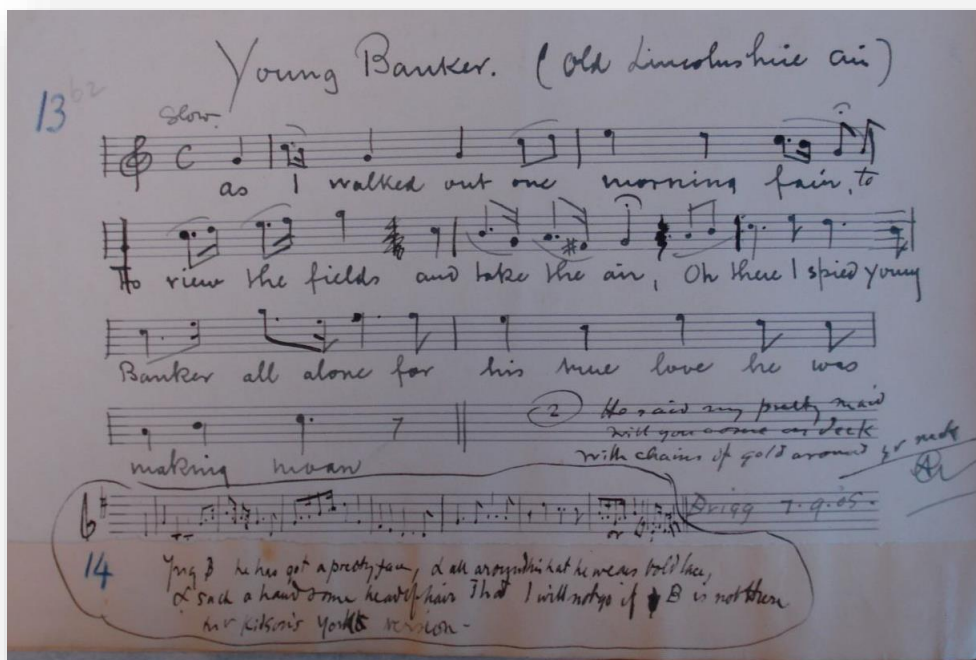 Young Banker. (old Lincolnshire air)
13 62
Slow.
C
as I walked out one morning fair, to
To view the fields and take the air, Oh there I spied young
Banker all alone for his true love he was
making moan
2 He said my pretty maid
will you come on deck
with chains of gold around yr neck
Brigg 7.9.05.
or
14
Yng B he has got a pretty face, & all around his hat he wears bold lace,
& such a handsome head of hair That I will not go if B is not there
Mr Kidson's Yorks version -